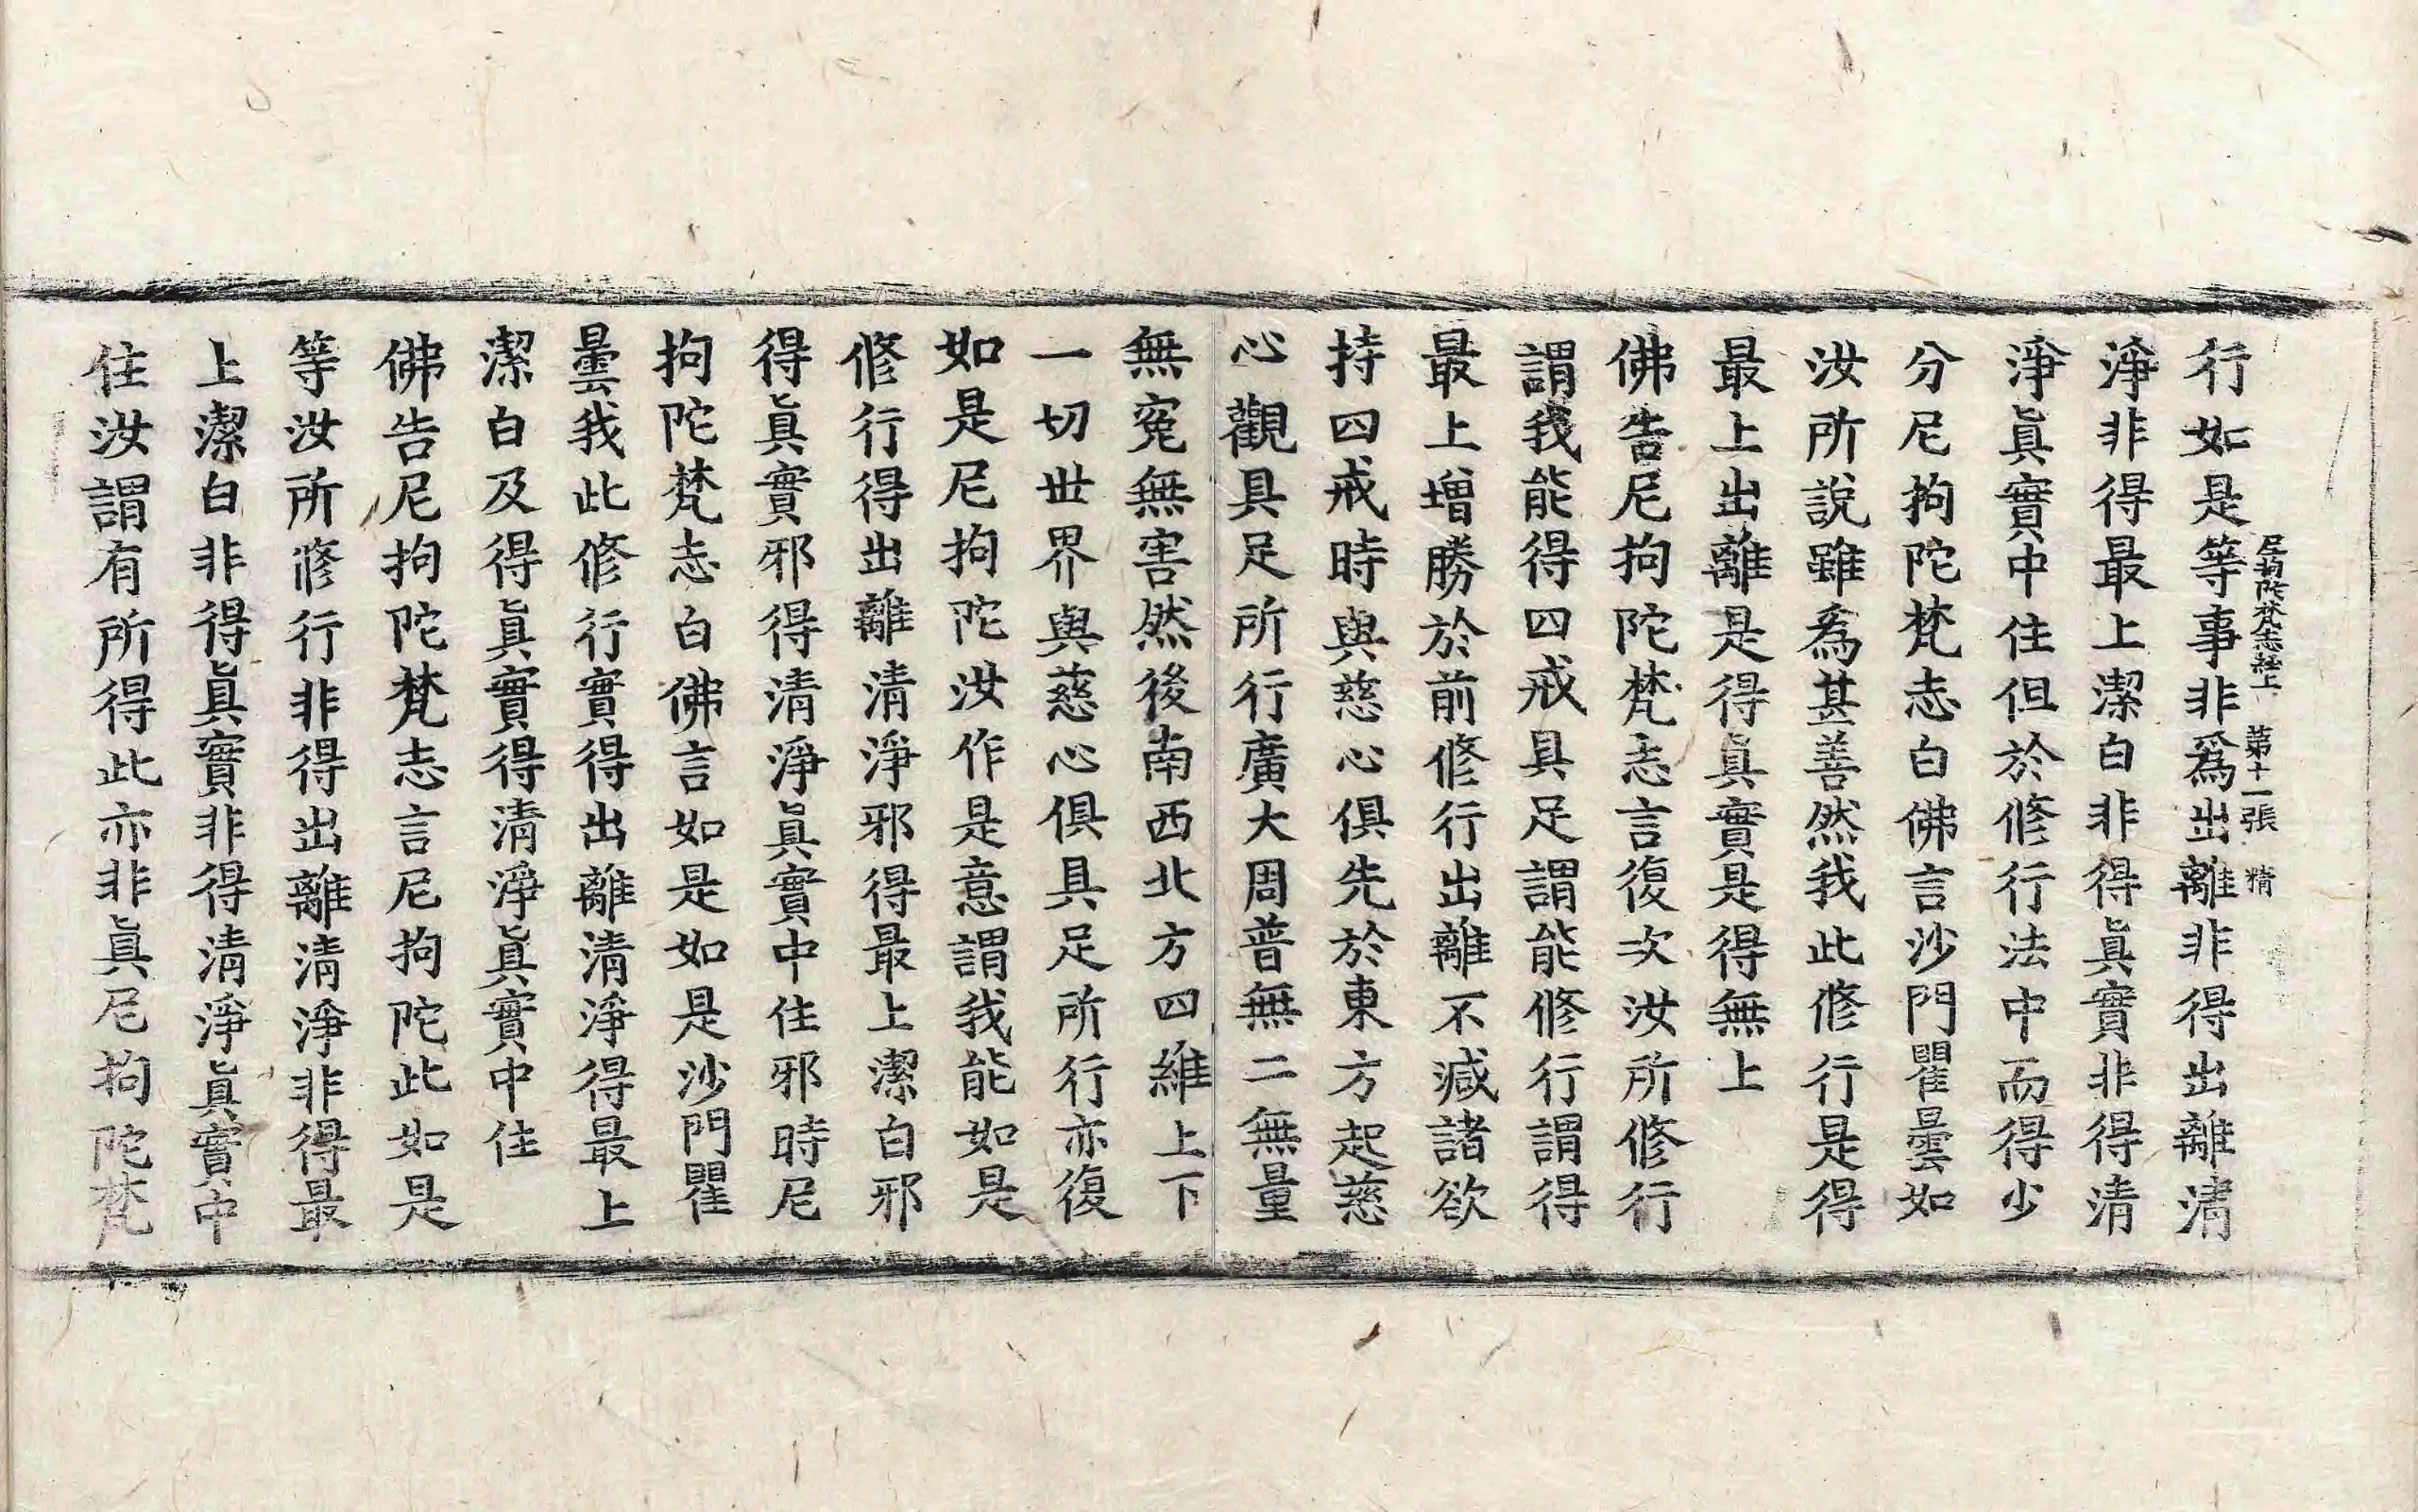 尼拘陀梵志經上 第十一張 精
行如是等事非爲出離非得出離清
淨非得最上潔白非得眞實非得清
淨眞實中住但於修行法中而得少
分尼拘陀梵志白佛言沙門瞿曇如
汝所說雖爲甚善然我此修行是得
最上出離是得眞實是得無上
佛告尼拘陀梵志言復次汝所修行
謂我能得四戒具足謂能修行謂得
最上增勝於前修行出離不減諸欲
持四戒時與慈心俱先於東方起慈
心觀具足所行廣大周普無二無量
無寃無害然後南西北方四維上下
一切世界與慈心俱具足所行亦復
如是尼拘陀汝作是意謂我能如是
修行得出離清淨邪得最上潔白邪
得眞實邪得清淨眞實中住邪時尼
拘陀梵志白佛言如是如是沙門瞿
曇我此修行實得出離清淨得最上
潔白及得眞實得清淨眞實中住
佛告尼拘陀梵志言尼拘陀此如是
等汝所修行非得出離清淨非得最
上潔白非得眞實非得清淨眞實中
住汝謂有所得此亦非眞尼拘陀梵